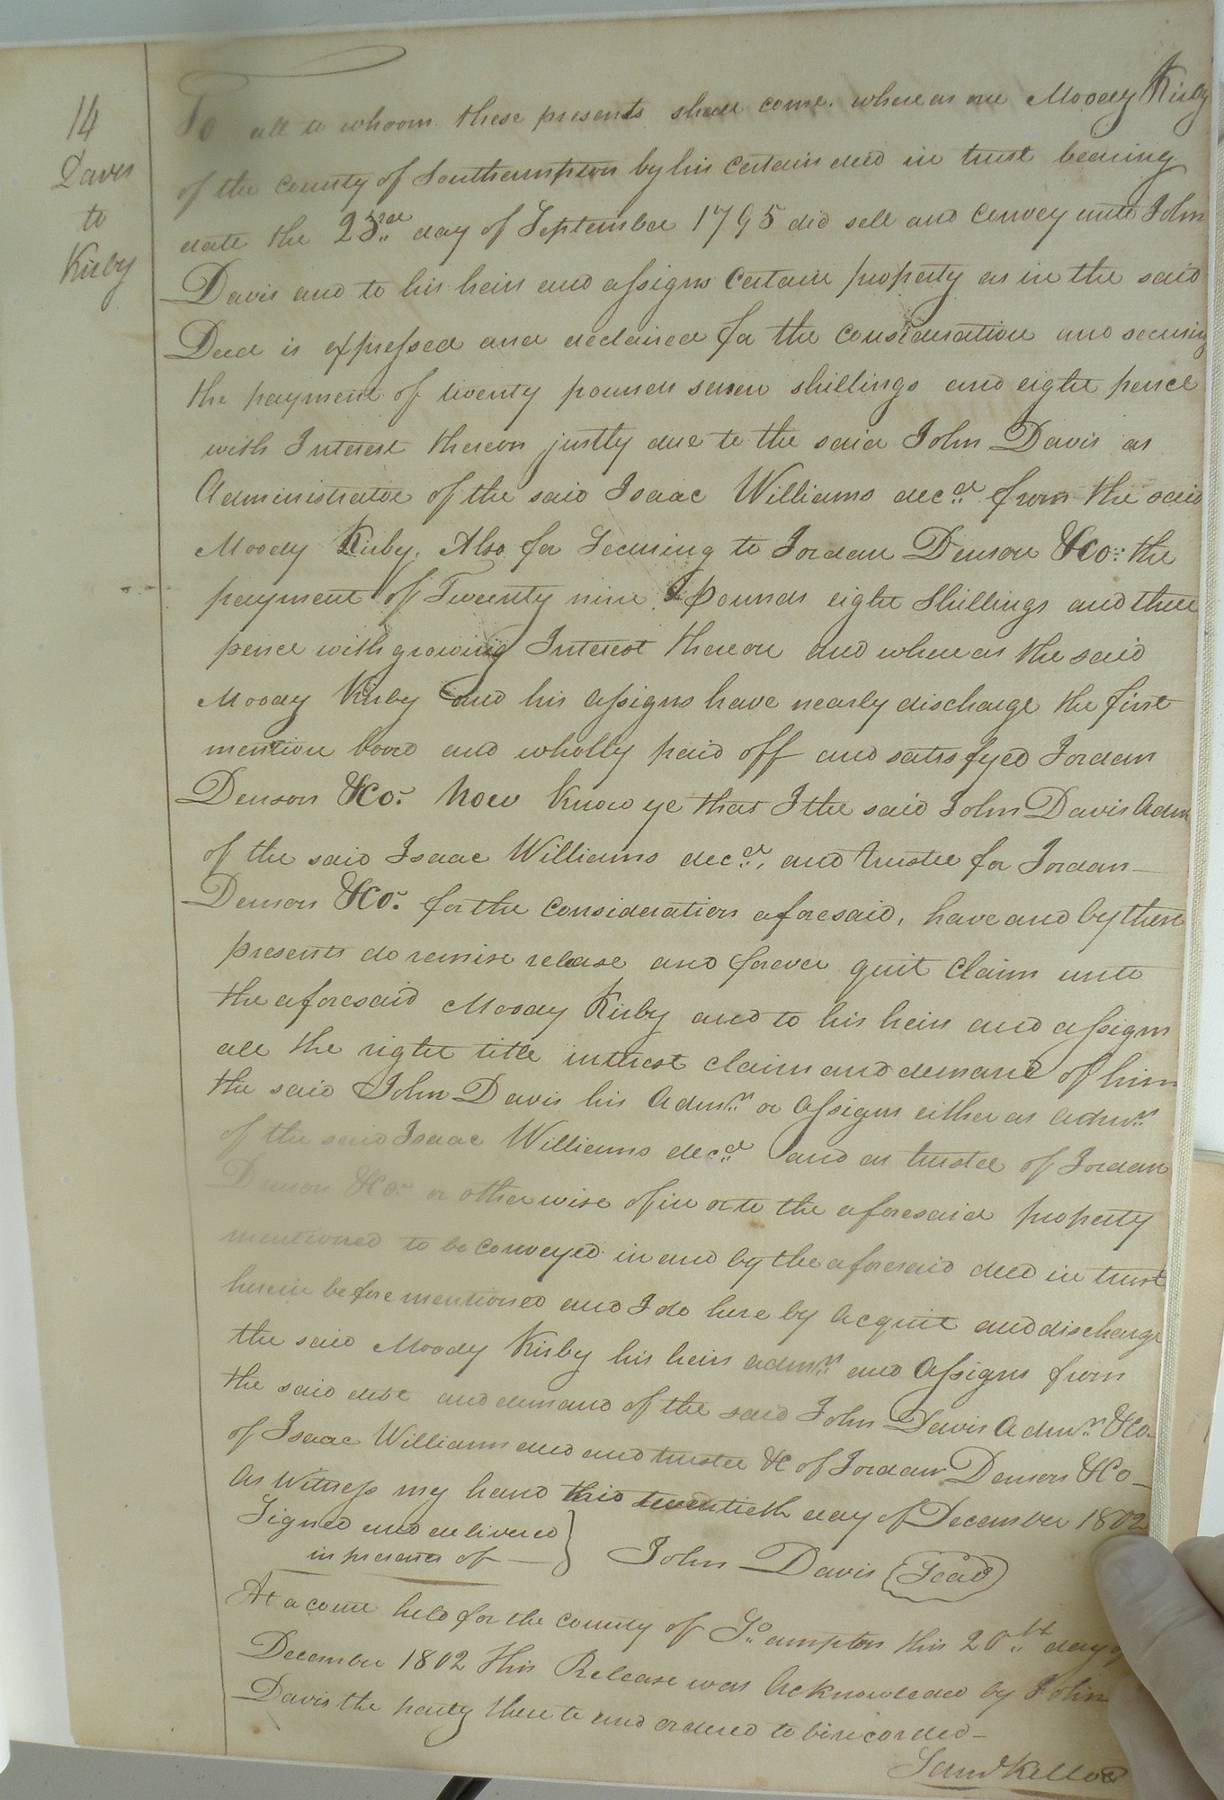 14
Davis
to
Kirby
To all to whoom these presents shall come. where as one Moody Kirby
of the County of Southampton by his certain deed in trust bearing
date the 23rd day of September 1795 did sell and convey unto John
Davis and to his heirs and assigns certain property as in the said
Deed is expressed and declaired for the consideration and securing
the payment of twenty pounds seven shillings and eight pence
with Interest thereon justly due to the said John Davis as
Administrator of the said Isaac Williams decd from the said
Moody Kirby. Also for Securing to Jordan Denson &Co: the
payment of Twenty nine Pounds eight Shillings and three
pence with growing Interest thereon and where as the said
Moody Kirby and his assigns have nearly discharge the first
mention bond and wholly paid off and satisfyed Jordan
Denson &Co. Now Know ye that I the said John Davis Adm
of the said Isaac Williams decd, and trustee for Jordan
Denson &Co. for the consideration aforesaid, have and by these
presents do remise release and forever quit claim unto
the aforesaid Moody Kirby and to his heirs and assigns
all the right title interest claim and demand of him
the said John Davis his Admrs or Assigns either as Admr
of the said Isaac Williams decd and as trustee of Jordan
Denson &Co. or otherwise of in or to the aforesaid property
mentioned to be conveyed in and by the aforesaid deed in trust
herein before mentioned and I do here by Acquit and discharge
the said Moody Kirby his heirs admrs and Assigns from
the said debt and demand of the said John Davis Admr &Co.
of Isaac Williams and trustee &c of Jordan Denson &Co
As Witness my hand this twentieth day of December 1802
Signed and delivered
in presence of
John Davis (Seal)
At a court held for the county of So.ampton this 20th day of
December 1802 this Release was Acknowledged by John
Davis the party there to and ordered to be recorded
Saml Kello